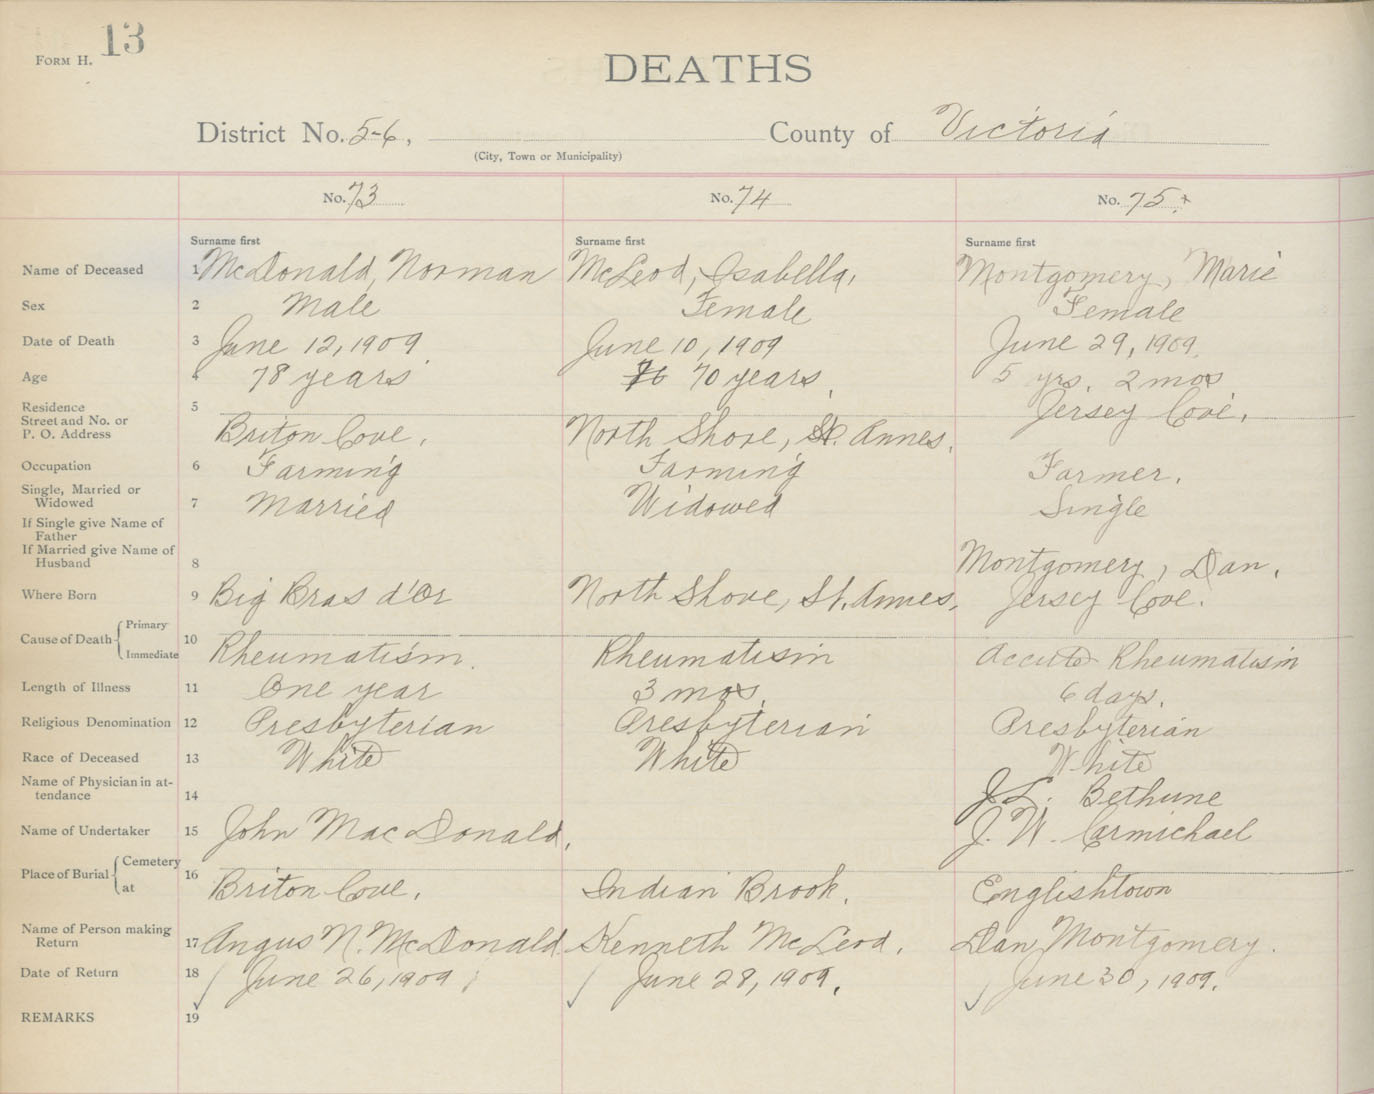 FORM H. 13
DEATHS
District No. 5-6, County of Victoria
(City, Town or Municipality)
No. 73 No. 74 No. 75 x
Surname first Surname first Surname first
Name of Deceased 1 McDonald, Norman McLeod, Isabella, Montgomery, Marie
Sex 2 Male Female Female
Date of Death 3 June 12, 1909 June 10, 1909 June 29, 1909.
Age 4 78 years 76 70 years, 5 yrs. 2 mos
Residence 5 Jersey Cove,
Street and No. or
P. O. Address Briton Cove, North Shore, St. Annes,
Occupation 6 Farming Farming Farmer.
Single, Married or
Widowed 7 Married Widowed Single
If Single give Name of
Father
If Married give Name of
Husband 8 Montgomery, Dan,
Where Born 9 Big Bras d'Or North Shore, St. Annes, Jersey Cove.
Cause of Death { Primary
Immediate 10 Rheumatism. Rheumatism Accute Rheumatism
Length of Illness 11 One year 3 mos, 6 days,
Religious Denomination 12 Presbyterian Presbyterian Presbyterian
Race of Deceased 13 White White White
Name of Physician in at-
tendance 14 J. L. Bethune
Name of Undertaker 15 John MacDonald, J. W. Carmichael
Place of Burial { Cemetery
at 16 Briton Cove, Indian Brook, Englishtown
Name of Person making
Return 17 Angus N. McDonald Kenneth McLeod, Dan Montgomery.
Date of Return 18 June 26, 1909 June 28, 1909, June 30, 1909.
REMARKS 19